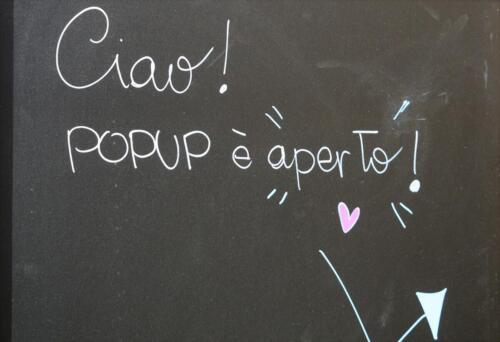 Ciao!
POPUP è aperto!